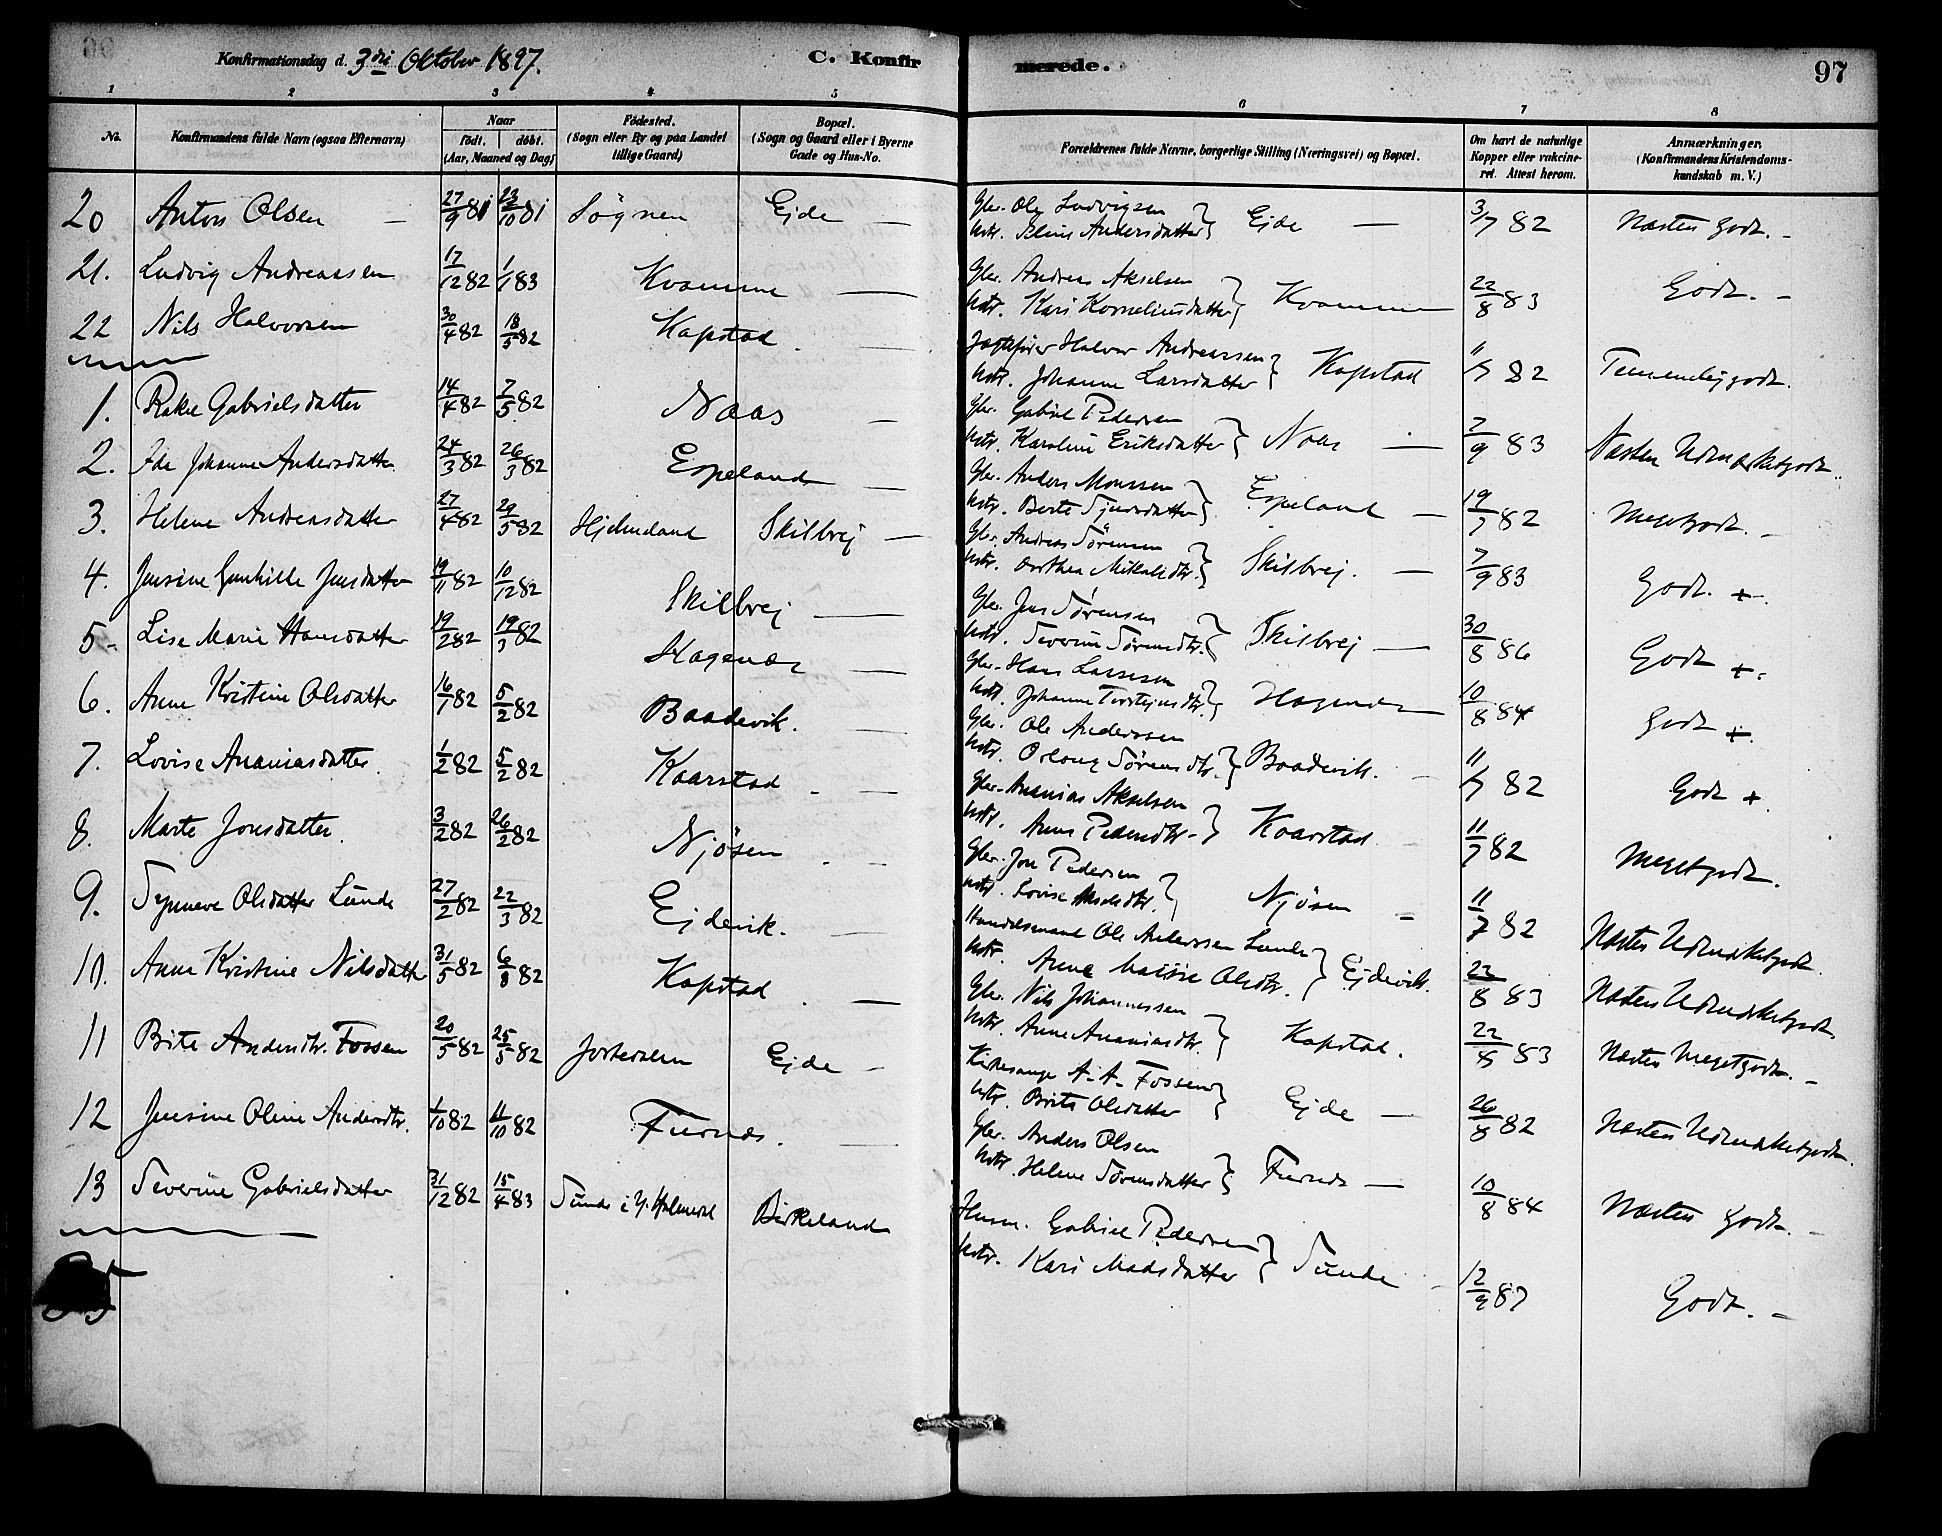 Konfirmationsdag d. 3die Oktober 1897.
C. Konfirmerede.
97
1 2 3 4 5 6 7 8
No.
Konfirmandens fulde Navn (ogsaa Efternavn)
Naar
födt. | döbt.
(Aar, Maaned og Dag)
Födested.
(Sogn eller By og paa Landet
tillige Gaard)
Bopæl.
(Sogn og Gaard eller i Byerne
Gade og Hus-No.
Forældrenes fulde Navne, borgerlige Stilling (Næringsvei) og Bopæl.
Om havt de naturlige
Kopper eller vakcine-
ret. Attest herom.
Anmærkninger.
(Konfirmandens Kristendoms-
kundskab m. V.)
20 Anton Olsen 27/9 81 23/10 81 Sögnen Ejde Gbr. Ole Ludvigsen
Hstr. Andersdatter } Ejde 3/7 82 Næsten godt.
21. Ludvig Andreassen 17/12 82 1/1 83 Kvamme Gbr. Andreas Akselsen
Hstr. Kari Korneliusdatter } Kvamme 22/8 83 Godt.
22 Nils Halvorsen 30/4 82 18/5 82 Kapstad Jagtefører Halvor Andreassen
Hstr. Johanne Larsdatter } Kapstad 11/7 82 Temmeliggodt.
1. Rakel Gabrielsdatter 14/4 82 7/5 82 Naas Gbr. Gabriel Pedersen
Hstr. Karoline Eriksdatter } Naas 7/9 83 Næsten Udmærketgodt.
2. Ida Johanne Andersdatter 24/3 82 26/3 82 Espeland Gbr. Anders Monssen
Hstr. Berte } Espeland 19/7 82 Megetgodt.
3. Helene Andreasdatter 27/4 82 29/5 82 Hjelmeland Skilbrej Gbr. Andreas Sörensen
Hstr. Dorthea Mikalsdtr. } Skilbrej. 7/9 83 Godt. +
4. Jensine Gunhilde Jensdatter 19/11 82 10/12 82 Skilbrej Gbr. Jens Sörensen
Hstr. Severine Sörensdtr. } Skilbrej 30/8 86 Godt +.
5. Lise Marie Hansdatter 19/2 82 19/3 82 Hagenæs Gbr. Hans Larssen
Hstr. Johanne Torstejnsdtr. } Hagenæs 10/8 84 Godt +.
6. Anne Kristine Olsdatter 16/1 82 5/2 82 Baadevik. Gbr. Ole Anderssen
Hstr. Oloug Sörensdtr. } Baadevik. 11/7 82 Godt +.
7. Lovise Ananiasdatter 1/2 82 5/2 82 Kaarstad Gbr. Ananias Akselsen
Hstr. Anne Pedersdtr. } Kaarstad 11/7 82 Megetgodt.
8. Marte Jonsdatter. 3/2 82 26/2 82 Njösen Gbr. Jon Pedersen
Hstr. Lovise Akselsdtr. } Njösen 11/7 82 Næsten Udmærketgodt
9. Synneve Olsdatter Lunde 27/2 82 22/3 82 Ejdevik. Handelsmand Ole Anderssen Lunde
Hstr. Anne Olsdtr. } Ejdevik. 22/8 83 Næsten Udmærketgodt
10. Anne Kristine Nilsdatter 31/5 82 6/8 82 Kapstad Gbr. Nils Johannessen
Hstr. Anne Ananiasdtr. } Kapstad. 22/8 83 Næsten Megetgodt.
11 Brite Andersdtr. Fossen 20/5 82 25/5 82 Jostedalen Ejde Kirkesanger A. A. Fossen
Hstr. Brite Olsdatter } Ejde 26/8 82 Næsten Udmærketgodt.
12 Jensine Oline Andersdtr. 1/10 82 11/10 82 Furnæs. Gbr. Anders Olsen
Hstr. Helene Sörensdatter } Furnæs 10/8 84 Næsten godt.
13 Severine Gabrielsdatter 31/12 82 15/4 83 Sunde i Y. Holmedal Birkeland Husm. Gabriel Pedersen
Hstr. Kari Madsdatter } Sunde 12/9 87 Godt.